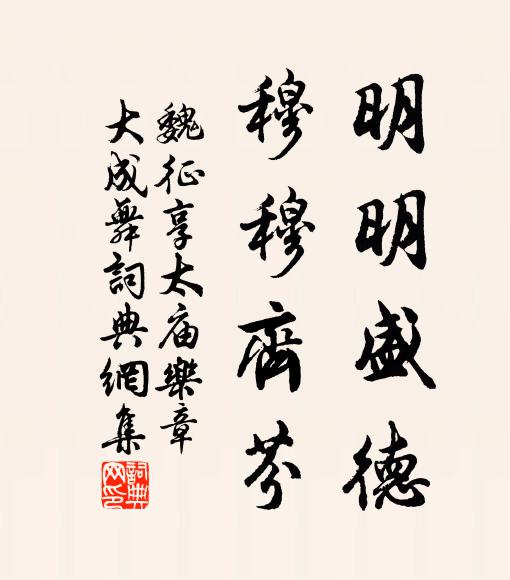 明明盛德
穆穆齊芬
魏征享太庙樂章
大成舞詞典網集
詞典网印